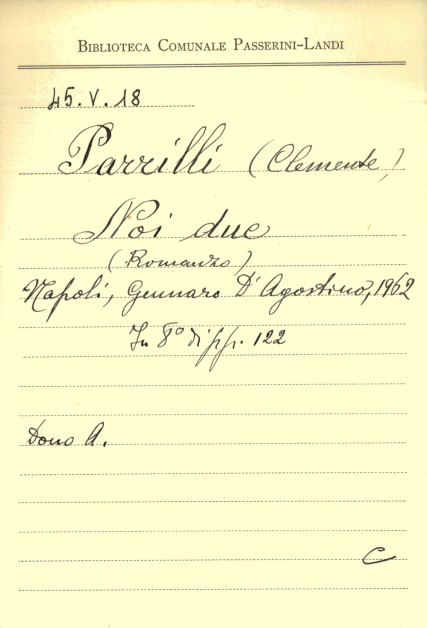 BIBLIOTECA COMUNALE PASSERINI-LANDI
45.V.18
Parrilli (Clemente)
Noi due
(Romanzo)
Napoli, Gennaro D'Agostino, 1962
In 8° di pp. 122
Dono A.
C